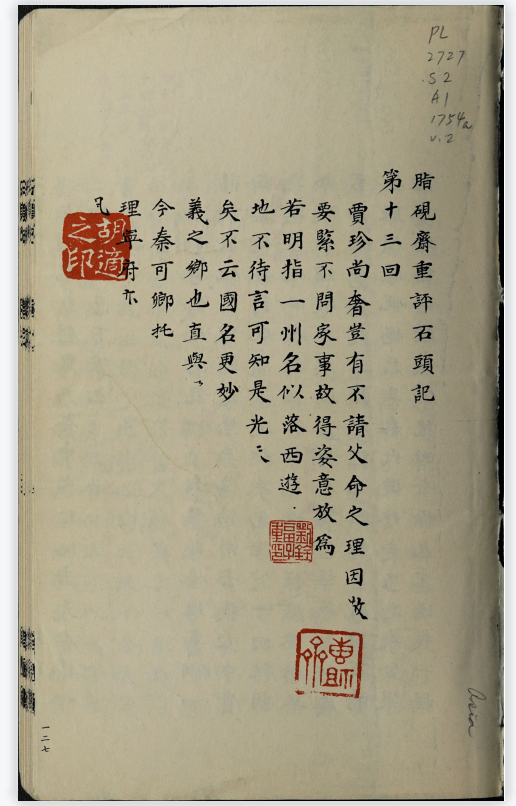 PL
2727
.S2
A1
1754a
v.2
脂硯齋重評石頭記
第十三回
賈珍尚奢豈有不請父命之理因敀
要緊不問家事故得姿意放為
若明指一州名似落西遊
地不待言可知是光〻
矣不云國名更妙
義之鄉也直與
今秦可卿托
理寧府亦
凡
胡適之印
劉銓畐子重印
Asia
一二七